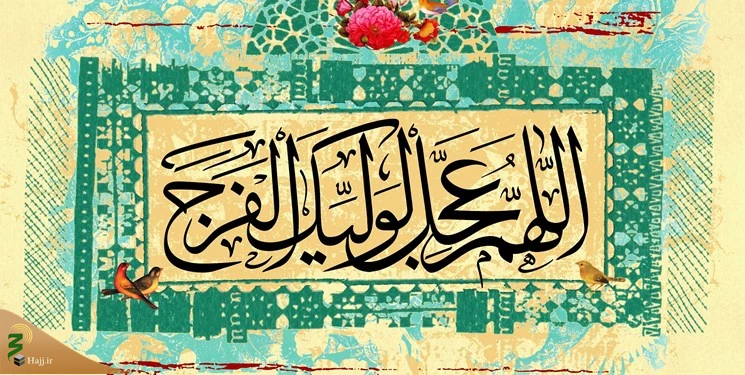 اللّهُمَّ عَجِّل لِوَلیِّکَ الْفَرَجَ
Hajj.ir